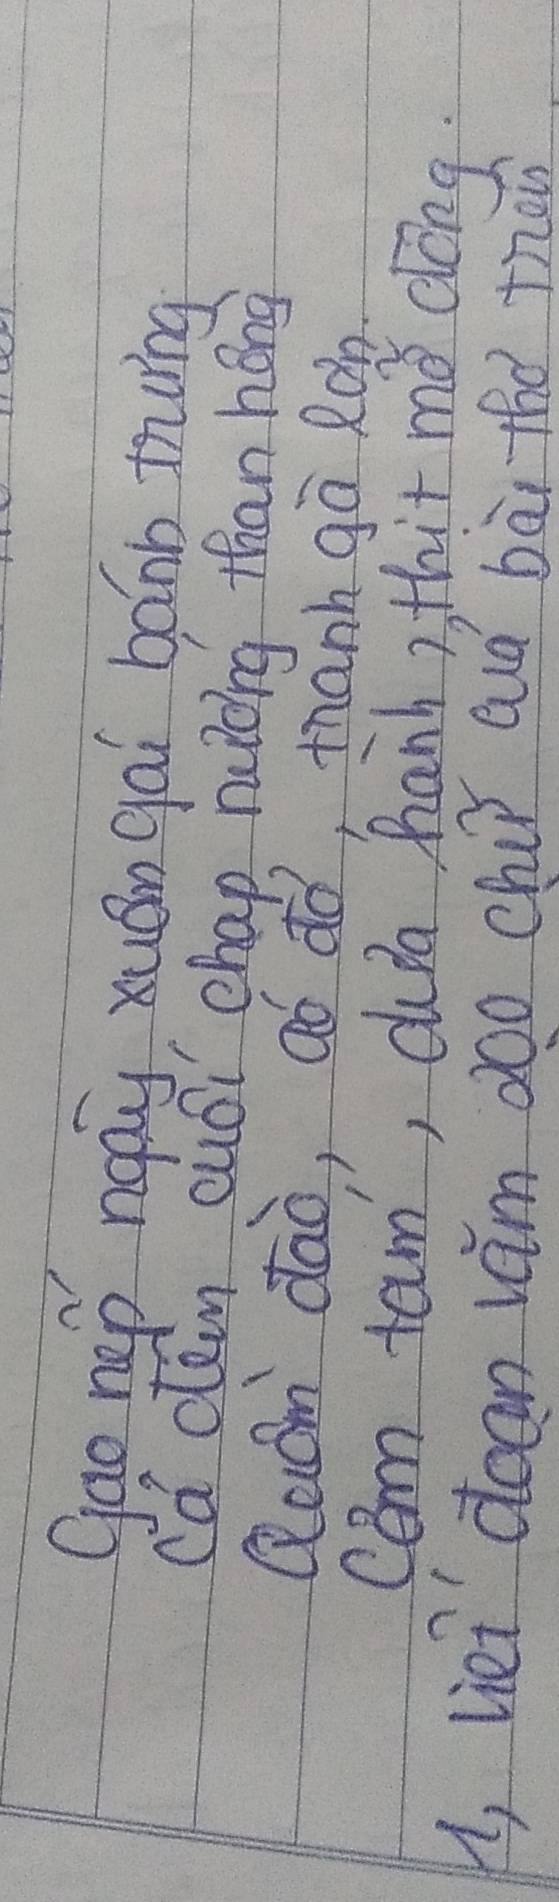 Gạo nếp ngày xuân gói bánh trưng
Cá dìm cuối chạp nướng than hồng
Quần đào, áo đỏ, tranh gà lợn.
Cơm tám, dưa hành, thịt mỡ đông.
1, Viết đoạn văm 200 chữ cuả bài thơ trên